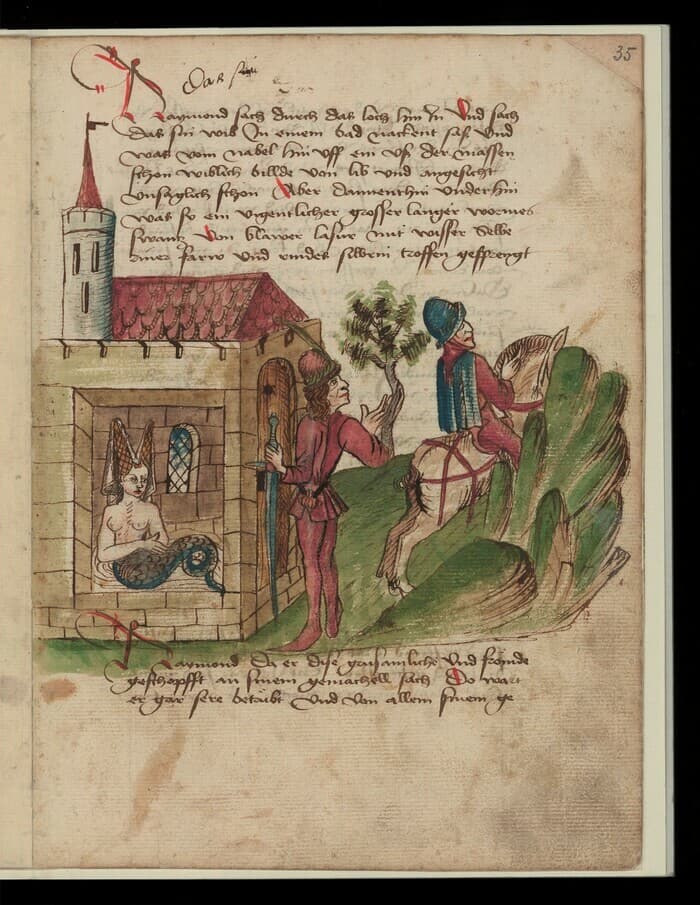 35
Das sin
Raymond sach durch das loch hin In Vnd sach
das sin wib In einem bad nackent sass Vnd
was vom nabel hin vff ein vß der massen
schon wiblich billde von lib vnd angesicht
vnsaglich schon Aber dannenthin vnderhin
was sy ein vigentlicher grosser langer wormes
swantz Von blawer lasur mit wisser Selbe
farw Vnd rindes silbrin troffen gesprengt
Raymond da er dise grusamliche Vnd frömde
geschöpfft an sinem gemachell sach Do wart
er gar sere betrübt Vnd Von allem sinem ge